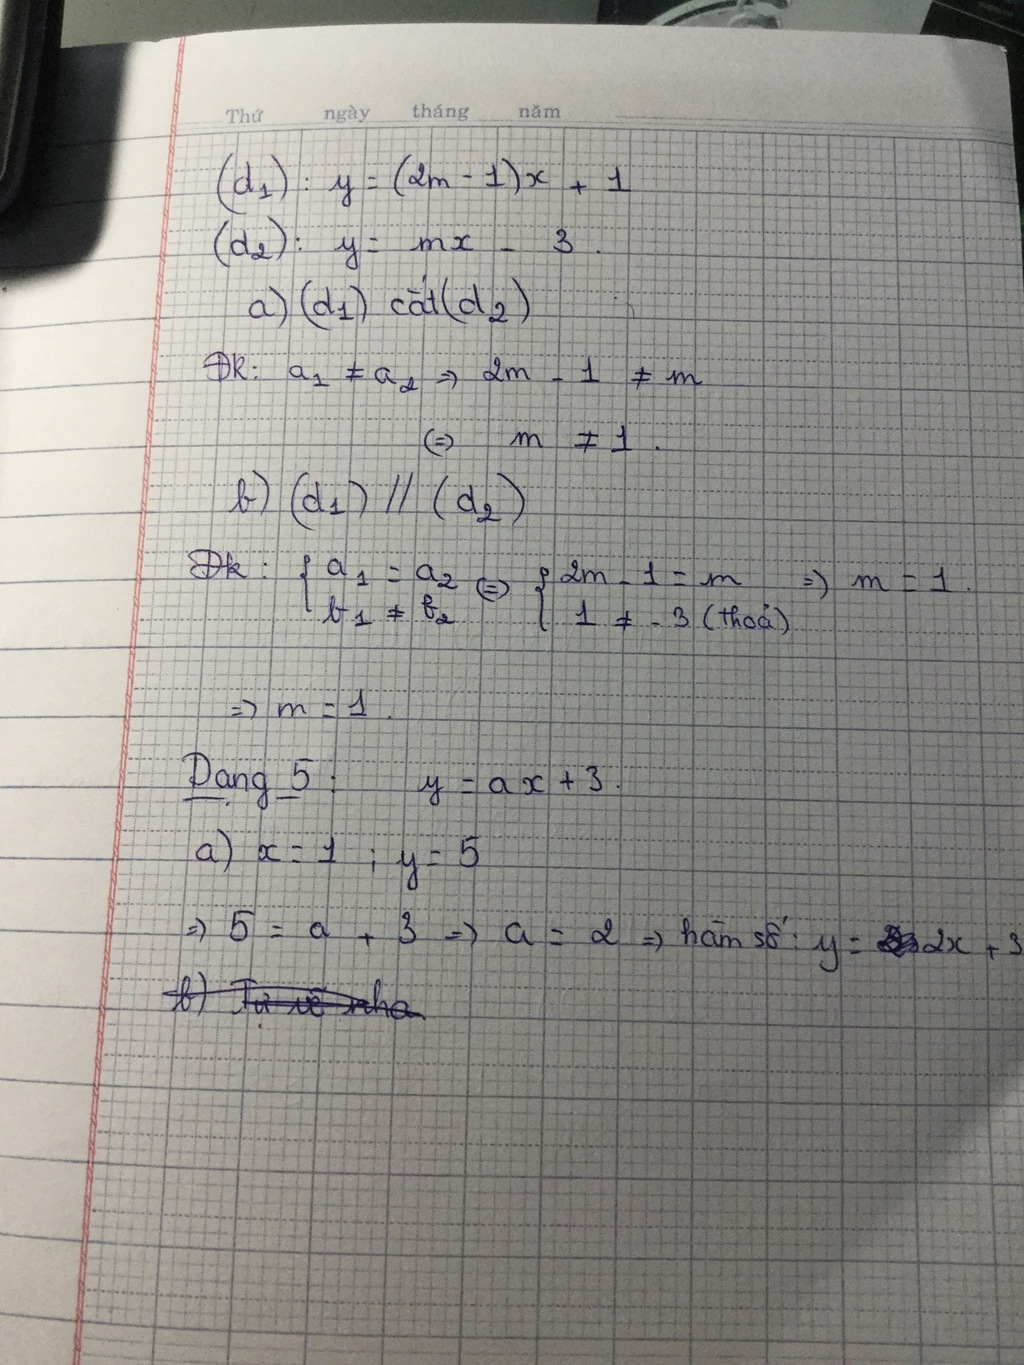 Thứ ngày tháng năm
(d1): y = (2m - 1)x + 1
(d2): y = mx - 3.
a) (d1) cắt (d2)
Đk: a1 ≠ a2 => 2m - 1 ≠ m
(=) m ≠ 1.
b) (d1) // (d2)
Đk: { a1 = a2 (=) { 2m - 1 = m => m = 1.
b1 ≠ b2 1 ≠ - 3 (thoả)
=> m = 1.
Dạng 5: y = ax + 3.
a) x = 1 ; y = 5
=> 5 = a + 3 => a = 2 => hàm số: y = 2x + 3
b) Tự vẽ nha